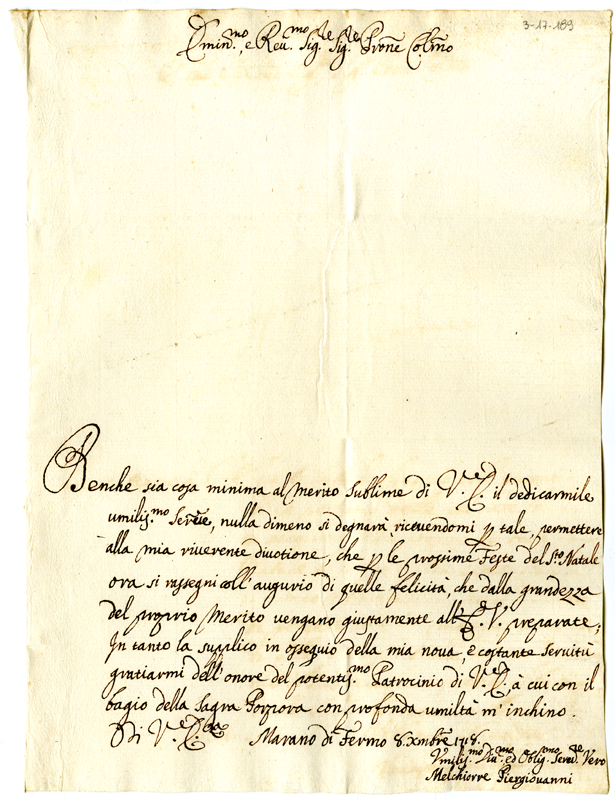 3-17-189
Emin.mo, e Reu.mo Sig.re Sig.re Prone Colmo
Benche sia cosa minima al merito sublime di V.Ez. il dedicarmile
umilis.mo Serure, nulla dimeno si degnarà, riceuendomi p tale, permettere
alla mia riuerente diuotione, che p le prossime Feste del S.to Natale
ora si rassegni coll' augurio di quelle felicità, che dalla grandezza
del proprio Merito vengano giustamente all' E. V. preparate;
In tanto la supplico in ossequio della mia noua, e costante seruitù
gratiarmi dell' onore del potentis.mo Patrocinio di V.Ez., à cui con il
bagio della Sagra Porpora con profonda umiltà m' inchino.
Di V.Ez.
Marano di Fermo 8 Xmbre 1718.
Vmilis.mo Diu.mo ed Oblig.mo Seru.re Vero
Melchiorre Piergiouanni